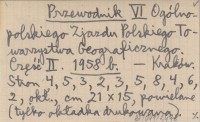 Przewodnik VI Ogólno-
polskiego Zjazdu Polskiego To-
warzystwa Geograficznego.
Część II. 1958 b. — Kraków.
Stron 4, 5, 3, 2, 3, 5, 8, 4, 6,
2, okł., cm 21 × 15, powielane
(tylko okładka drukowana).